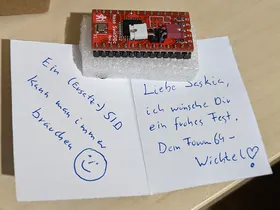 Ein (Ersatz-) SID
kann man immer
brauchen
Liebe Saskia,
ich wünsche Dir
ein frohes Fest.
Dein Forum64-
Wichtel